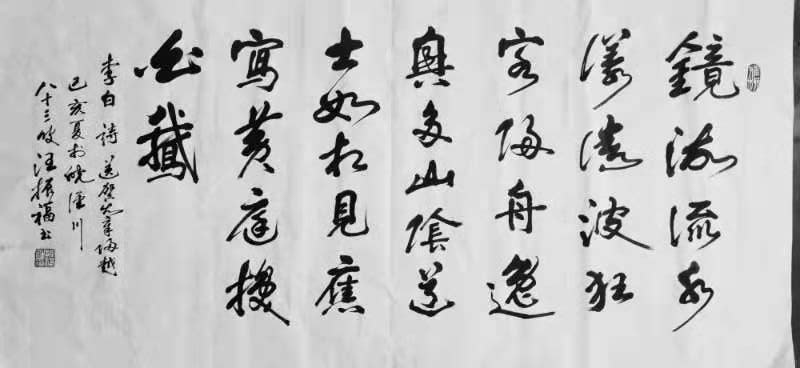 鏡湖流水
漾清波狂
客歸舟逸
興多山陰道
士如相見應
寫黃庭換
白鵝
李白詩送賀知章歸越
己亥夏於川
八十三叟汪振福書